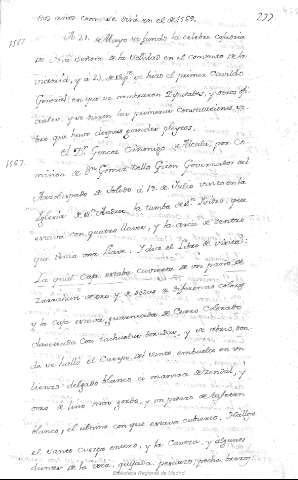 tres años como se dirá en el de 1569.
277
1567.
A 21. de Mayo se fundó la célebre Cofradía
de Nra Señora de la Soledad en el convento de la
Victoria, y à 23. de se hizo el primer Cavildo
General en que se nombraron Diputados, y otros ofi-
ciales, y se dieron las primeras Constituciones so-
bre que huvo despues grandes pleytos.
1567.
El Dr. Canonigo de Alcalà, por Co-
mision de Dn Gomez Tello Giron Governador del
Arzobispado de Toledo à 13. de Julio visitó en la
Iglesia de Sn Andres, la tumba de Sn Isidro, que
estava con quatro llaves, y la arca de dentro
que tenia otra llave. Y dice el Libro de Visita:
La qual Caja estaba cubierta de un paño de
de oro y de sedas de diferentes colores
y la caja estava guarnecida de Cuero Colorado
claveteada con tachuelas doradas, y se abrió, don-
de se halló el Cuerpo del Santo embuelto en un
lienzo delgado blanco à manera de zendal, y
otro de lino mas gordo, y un pedazo de tafetan
blanco, el ultimo con que estava cubierto. Hallose
el santo Cuerpo entero, y la Caveza, y algunos
dientes de la voca, quijada, pescuezo, pecho, brazos
Biblioteca Regional de Madrid